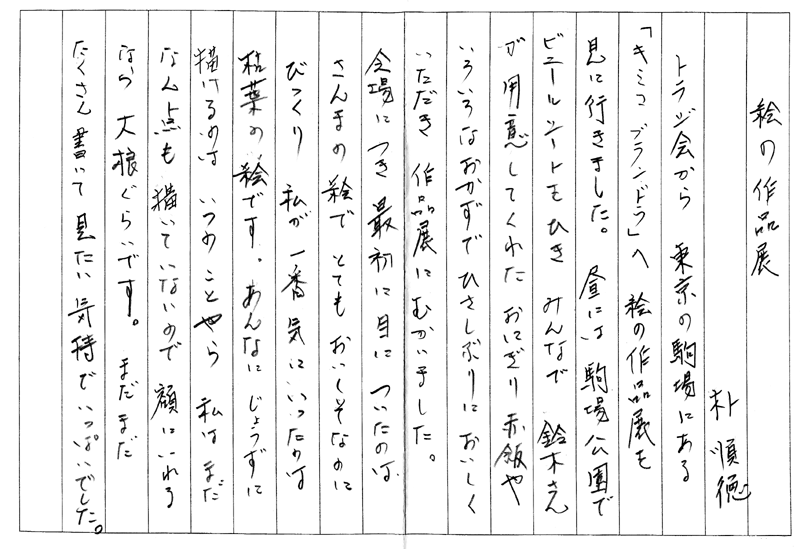 絵の作品展
朴 順徳
トラジ会から 東京の駒場にある
「キミコ プランドゥ」へ 絵の作品展を
見に行きました。 昼には 駒場公園で
ビニールシートをひき みんなで 鈴木さん
が用意してくれた おにぎり 赤飯や
いろいろなおかずで ひさしぶりに おいしく
いただき 作品展にむかいました。
会場につき 最初に目に ついたのは
さんまの絵で とても おいしそなのに
びっくり 私が 一番気にいったのは
枯葉の絵です。あんなに じょうずに
描けるのは いつのことやら 私は まだ
なん点も 描いていないので 額にいれる
なら 大根ぐらいです。 まだまだ
たくさん書いて 見たい 気持で いっぱいでした。